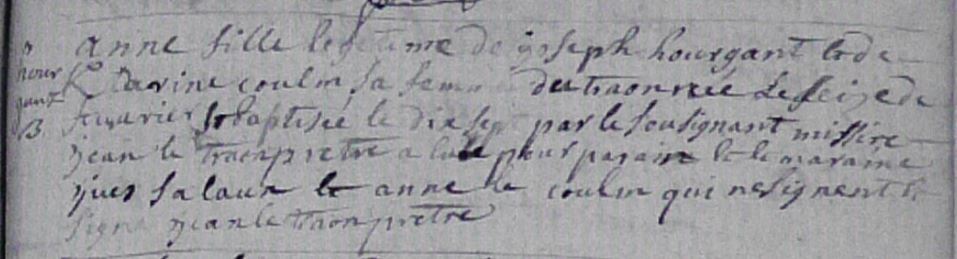 anne fille legetime de joseph hourgant et de
Katarine coulm sa femme du traonrice le seize de
feuvrier et baptisée le dix sept par le sousignant missire
jean le traon pretre a eut pour parain et le maraine
yves salaun et anne le coulm qui ne signent
signé jean le traon pretre
hour
gant
B.